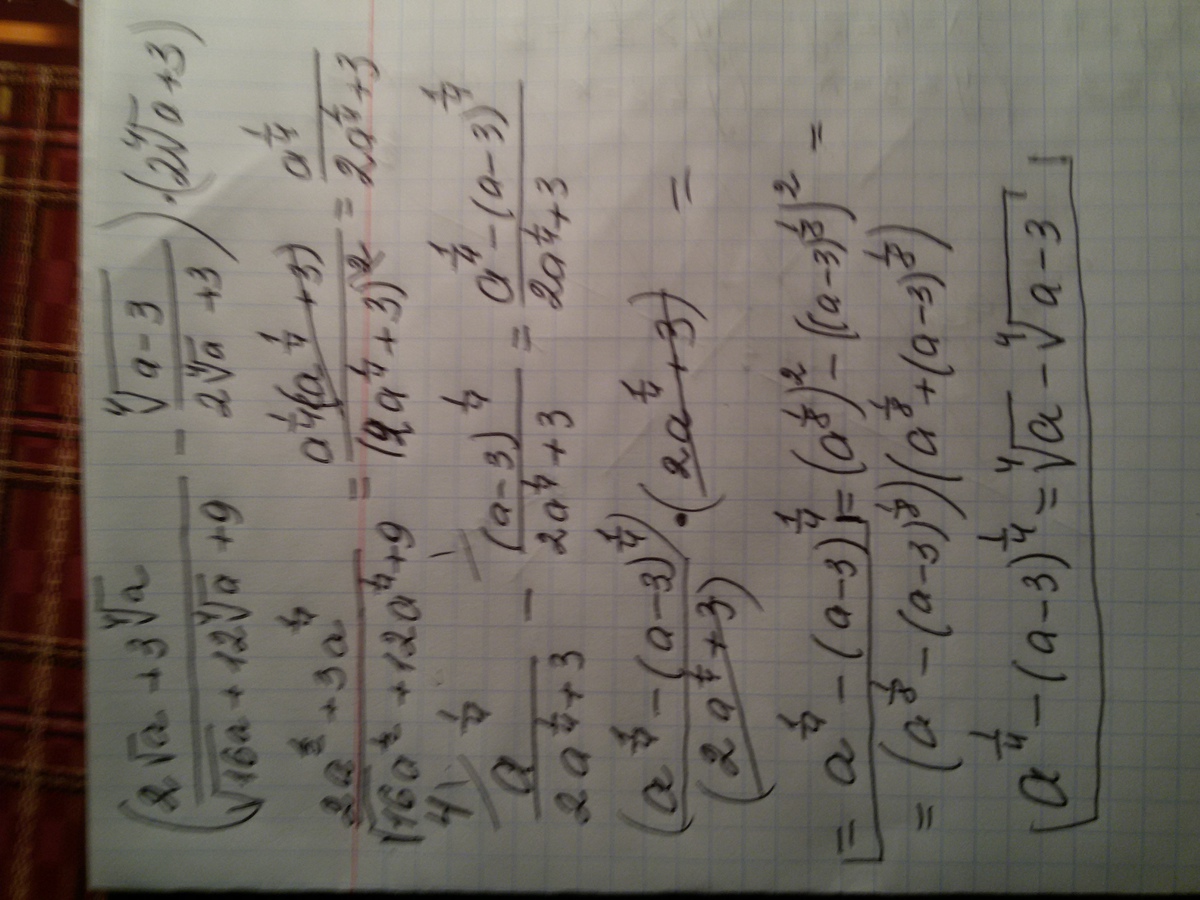 (2√a + 3∜a / √16a + 12∜a + 9 − ∜a−3 / 2∜a + 3) · (2∜a + 3)
2a^½ + 3a^¼ / √16a^½ + 12a^¼ + 9 = a^¼(a^¼ + 3) / (2a^¼ + 3)^2 = a^¼ / 2a^¼ + 3
a^¼ / 2a^¼ + 3 − (a−3)^¼ / 2a^¼ + 3 = a^¼ − (a−3)^¼ / 2a^¼ + 3
(a^¼ − (a−3)^¼) / (2a^¼ + 3) · (2a^¼ + 3) =
= a^¼ − (a−3)^¼ = (a^⅛)^2 − ((a−3)^⅛)^2 =
= (a^⅛ − (a−3)^⅛)(a^⅛ + (a−3)^⅛)
a^¼ − (a−3)^¼ = ∜a − ∜a−3